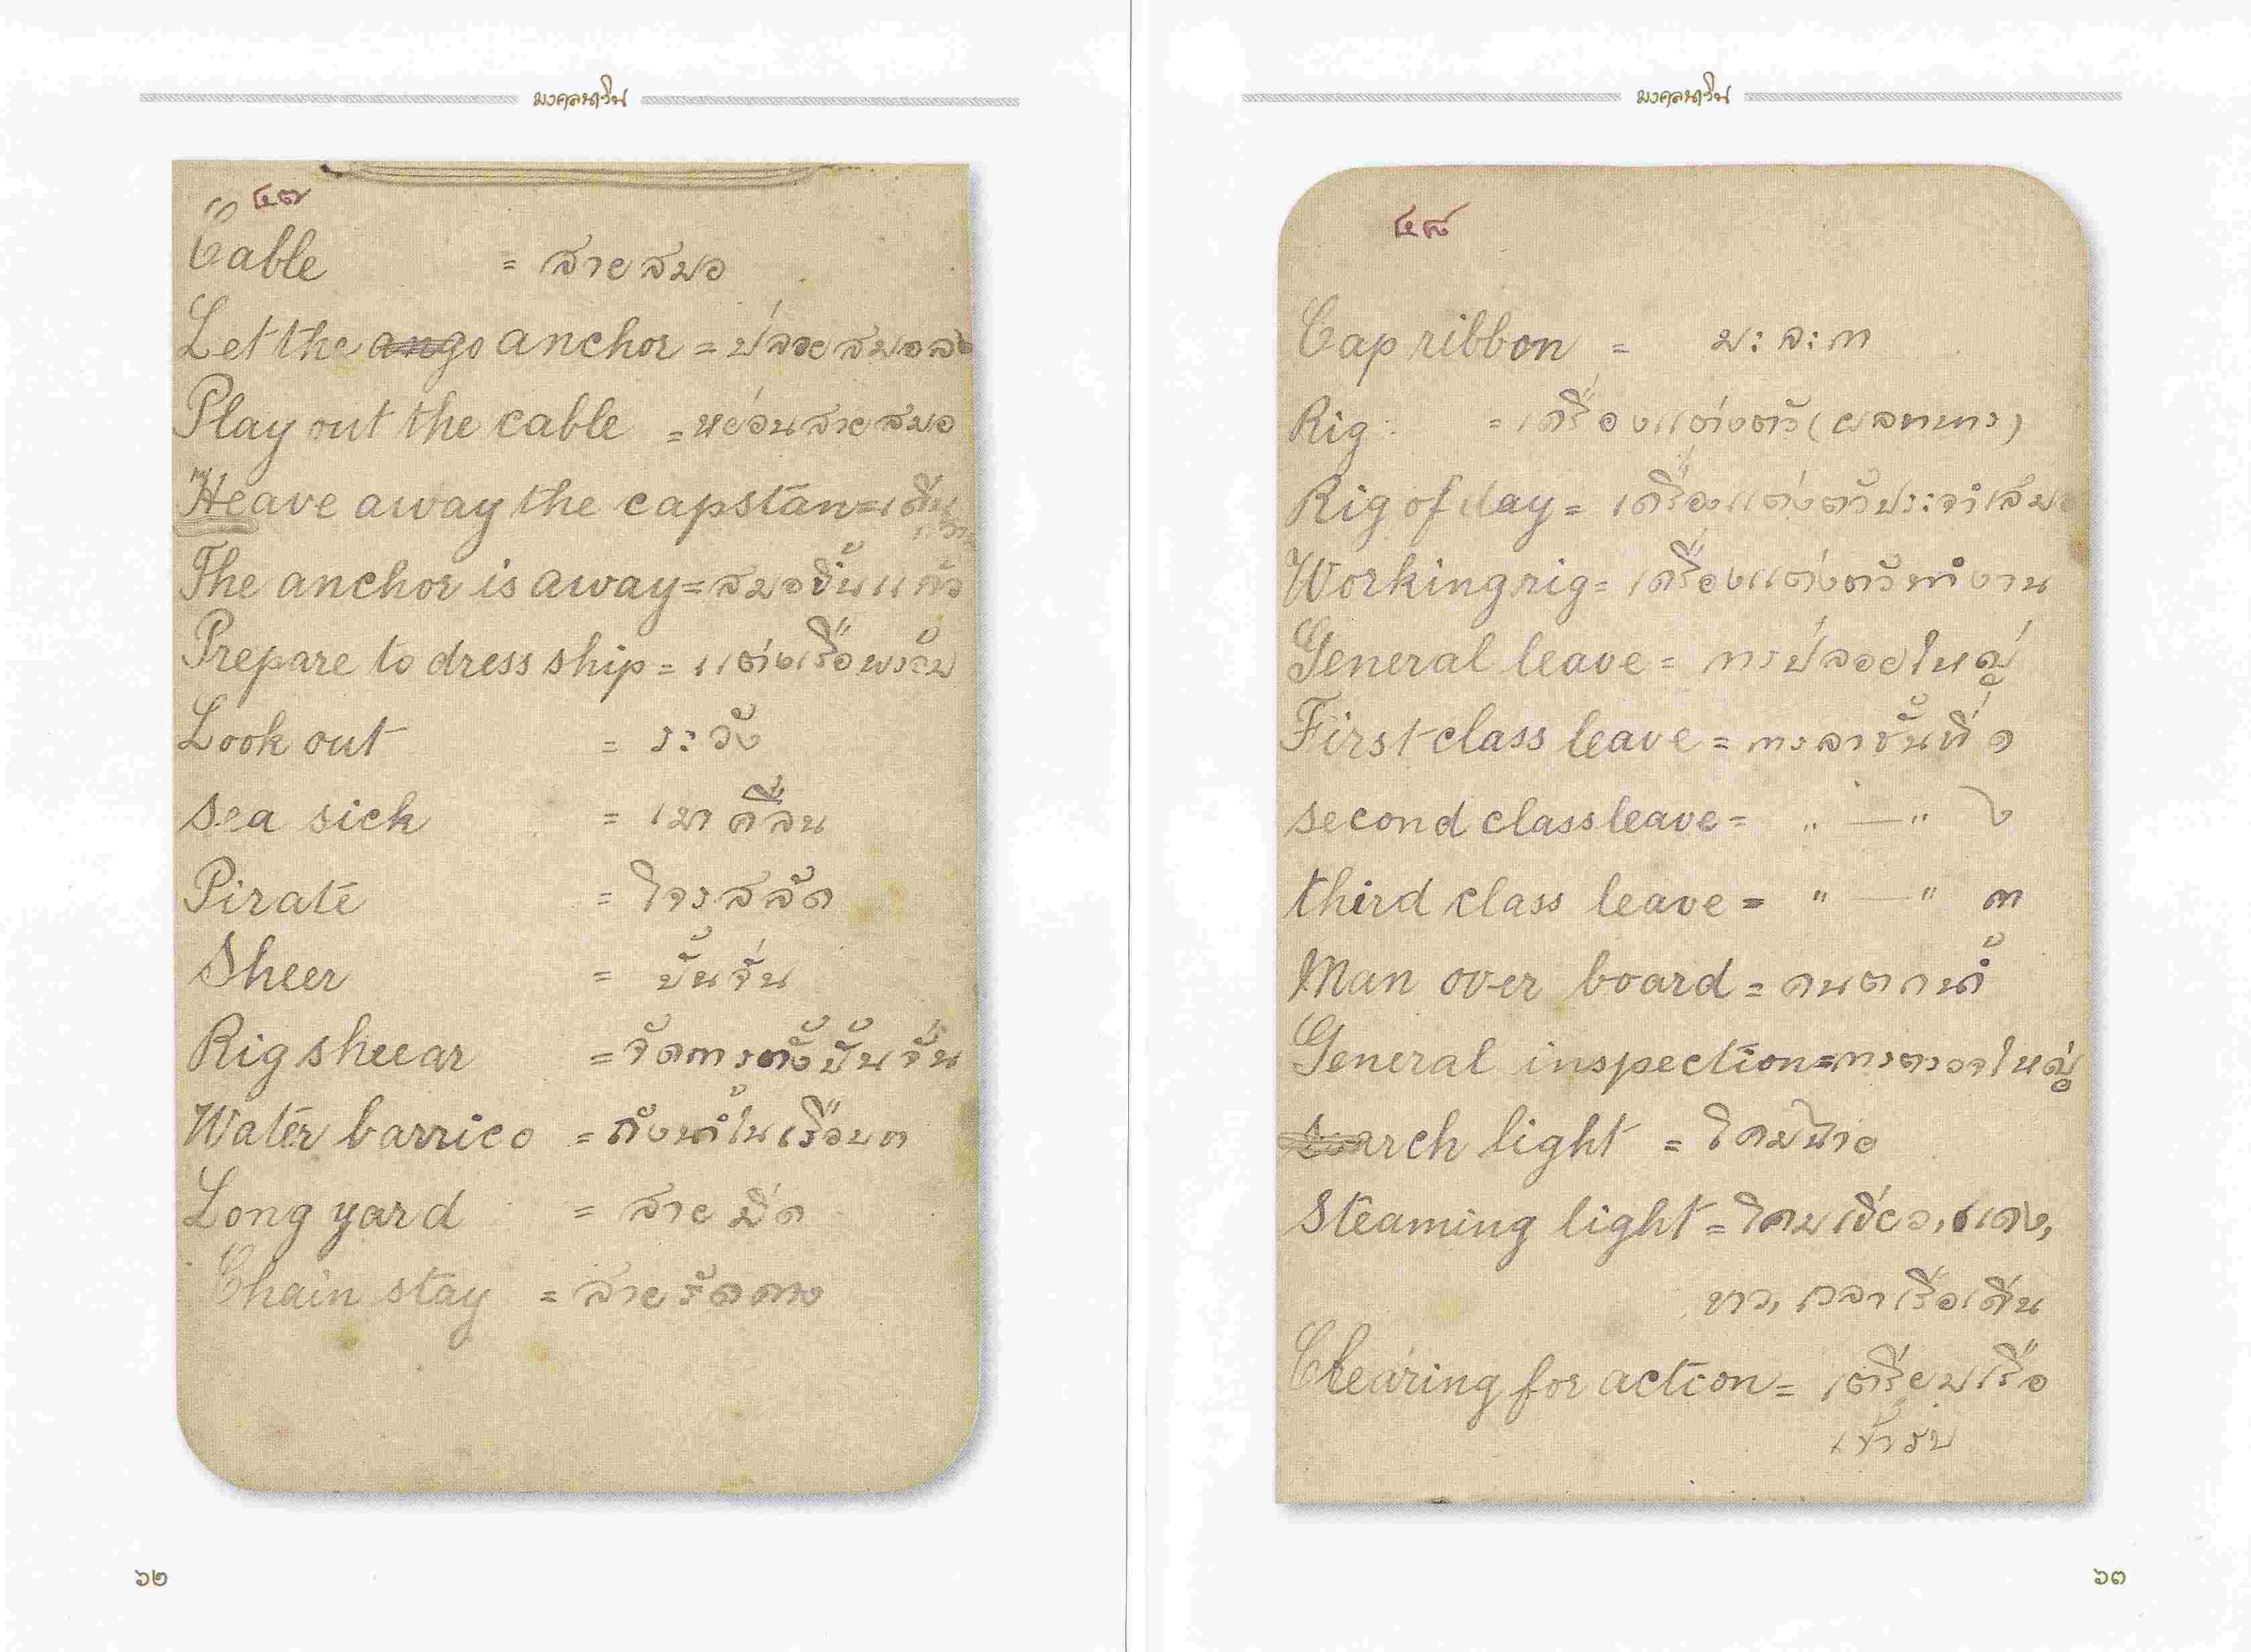 มงคลนาวิน
๔๗
Cable = สายสมอ
Let the go anchor = ปล่อยสมอลง
Play out the cable = หย่อนสายสมอ
Heave away the capstan = เดิน
กว้าน
The anchor is away = สมอขึ้นแล้ว
Prepare to dress ship = แต่งเรือพร้อม
Look out = ระวัง
Sea sick = เมาคลื่น
Pirate = โจรสลัด
Sheer = ปั้นจั่น
Rig sheear = จัดการตั้งปั้นจั่น
Water barrico = ถังน้ำในเรือบต
Long yard = สายมีด
Chain stay = สายรัดคาง
๖๒
มงคลนาวิน
๔๘
Cap ribbon = มะละกา
Rig = เครื่องแต่งตัว (พลทหาร)
Rig of day = เครื่องแต่งตัวประจำเสมอ
Working rig = เครื่องแต่งตัวทำงาน
General leave = การปล่อยใหญ่
First class leave = การลาชั้นที่ ๑
second class leave = " — " ๒
third class leave = " — " ๓
Man over board = คนตกน้ำ
General inspection = การตรวจใหญ่
search light = โคมไฟ
Steaming light = โคมเขียว, แดง,
ขาว, เวลาเรือเดิน
Clearing for action = เตรียมเรือ
เข้ารบ
๖๓